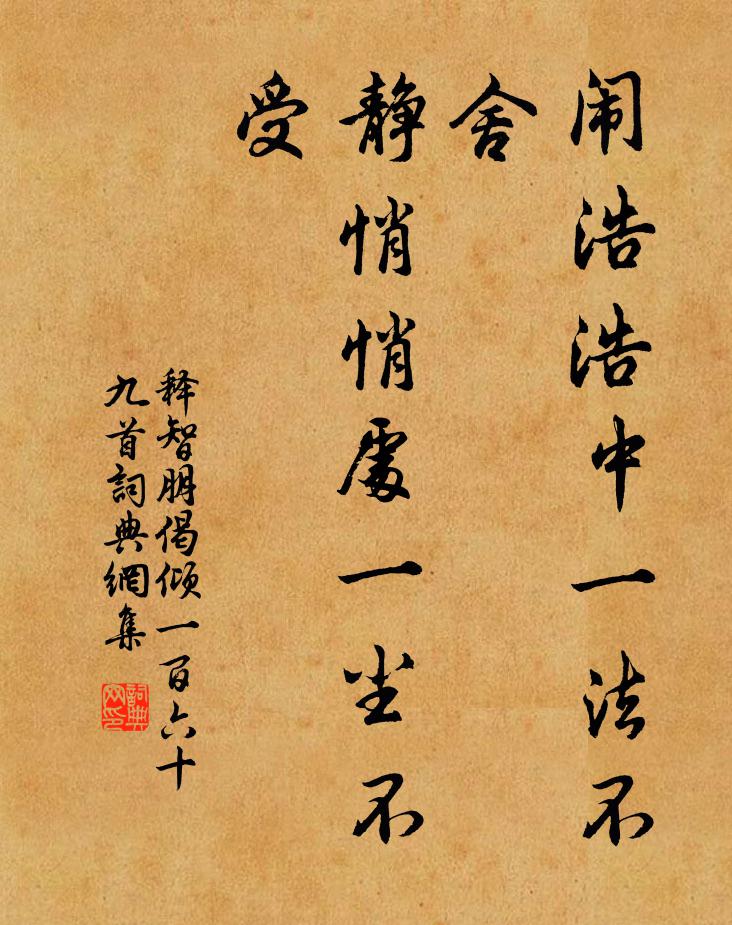 闹浩浩中一法不
舍
静悄悄處一尘不
受
释智朋偈倾一百六十
九首詞典網集
詞典
网印